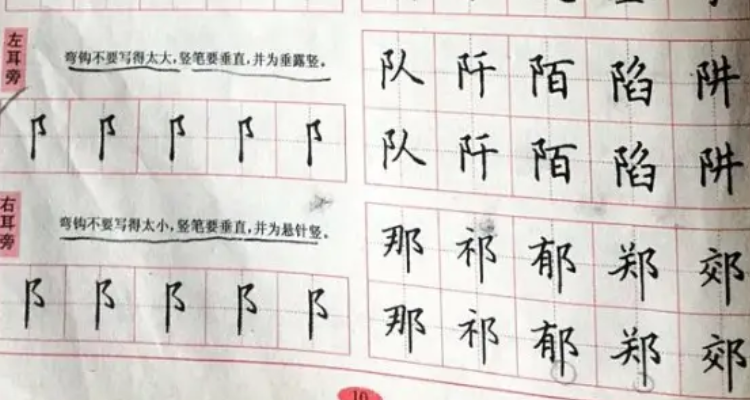 左耳旁
弯钩不要写得太大,竖笔要垂直,并为垂露竖。
阝 阝 阝 阝 阝
队 阡 陌 陷 阱
队 阡 陌 陷 阱
右耳旁
弯钩不要写得太小,竖笔要垂直,并为悬针竖。
阝 阝 阝 阝 阝
那 祁 郁 郑 郊
那 祁 郁 郑 郊
10